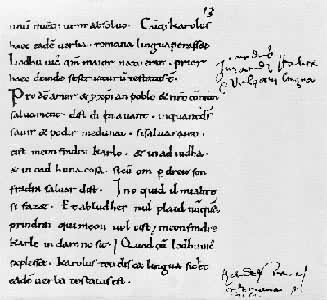 haec eadē uerba romana lingua perorass&
Lodhuuic qm̄ maior natu erat. prior
haec deinde se seruaturū testatus ē.
Pro dō amur & p xp̄ian poblo & nr̄o cōmun
saluament. dist di en auant. inquant dš
sauir & podir medunat. sisaluaraieo
cist meon fradre karlo. & in adiudha
& in cad huna cosa. sicū om p dreit son
fradra saluar dist. Ino quid il mi altre
si faz&. Et abludher nul plaid nūquā
prindrai qui meon uol cist meon fradre
karle in damno sit. Quod cū lodhuuic
expless&. karolus teudisca lingua sic hec
eadē uerba testatus est.